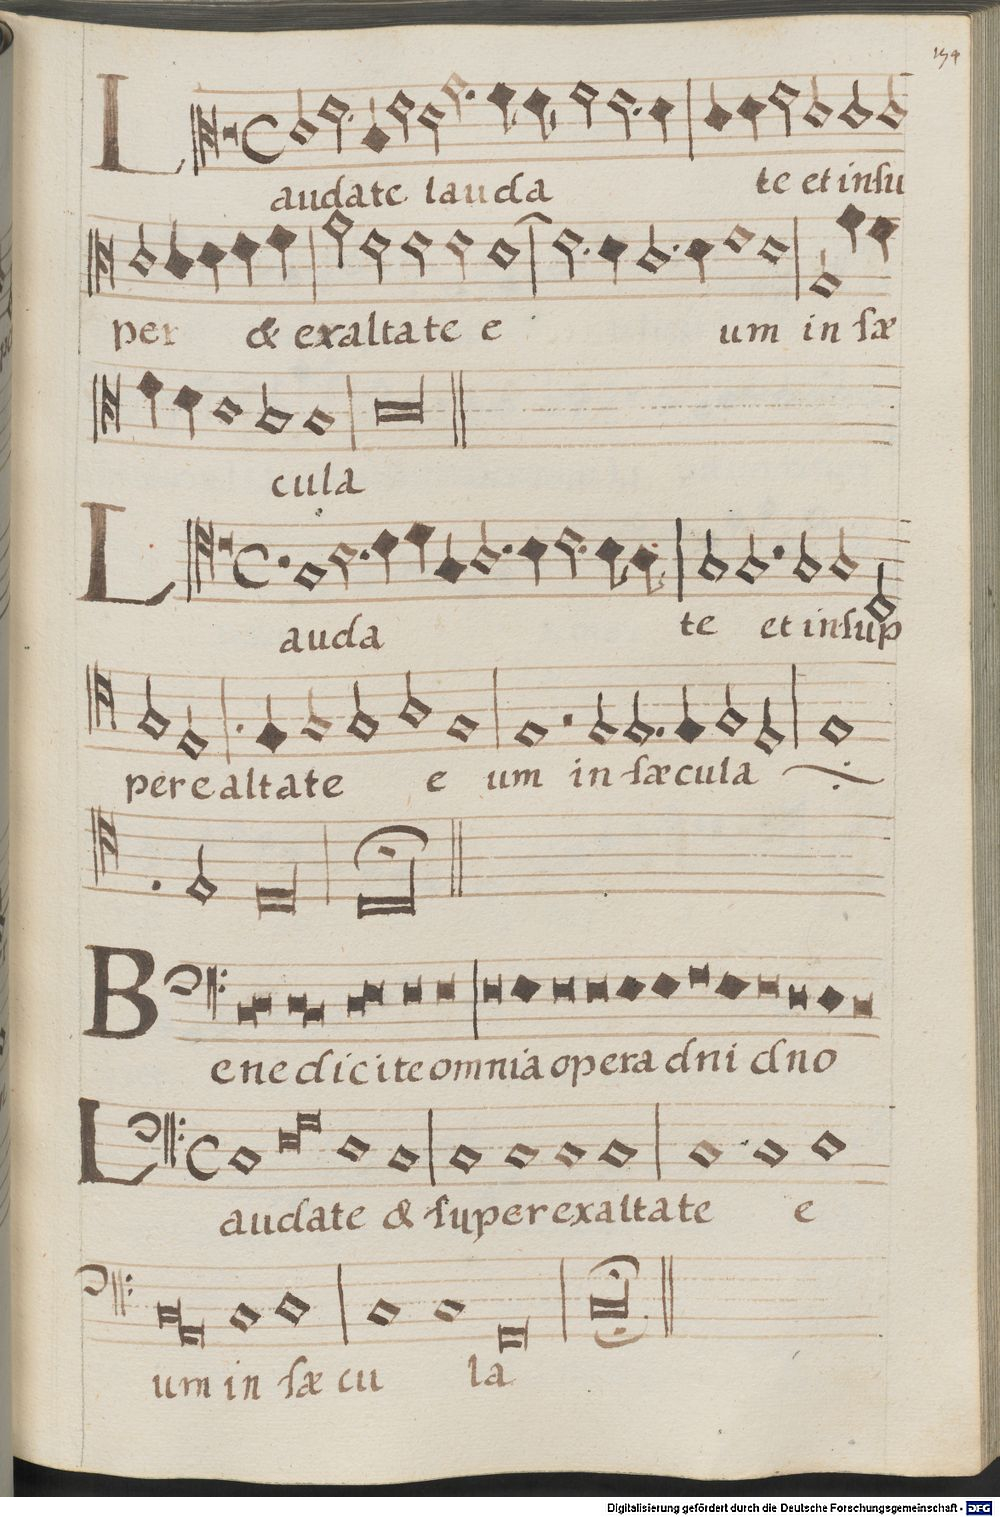 154
Laudate lauda te et insu
per & exaltate e um in sæ
cula
Lauda te et insup
per ealtate e um in sæcula
Benedicite omnia opera dni dno
Laudate & superexaltate e
um in sæ cu la
Digitalisierung gefördert durch die Deutsche Forschungsgemeinschaft - DFG